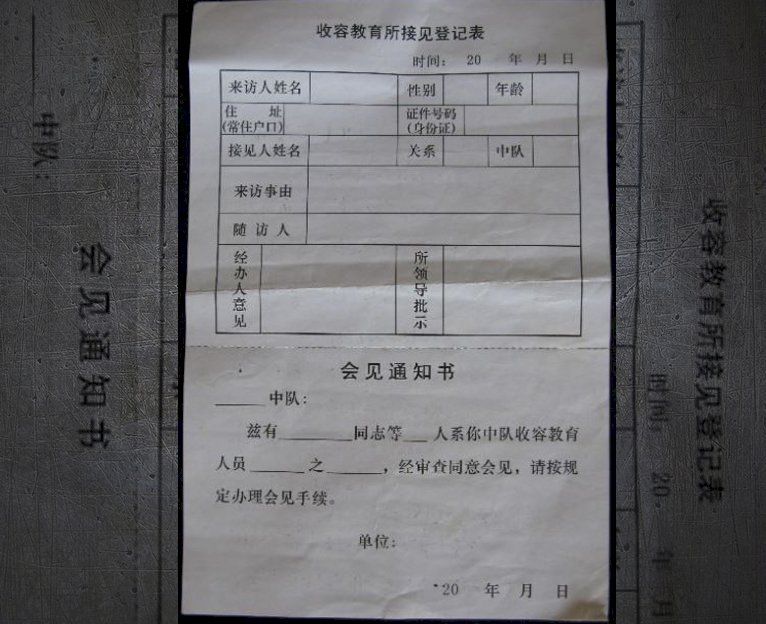 收容教育所接见登记表
时间： 20 年 月 日
来访人姓名 性别 年龄
住 址 (常住户口) 证件号码 (身份证)
接见人姓名 关系 中队
来访事由
随 访 人
经办人意见 所领导批示
会见通知书
______中队：
兹有________同志等___人系你中队收容教育
人员______之______，经审查同意会见，请按规
定办理会见手续。
单位：
20 年 月 日
中队：
会见通知书
收容教育所接见登记表
时间： 20 年 月